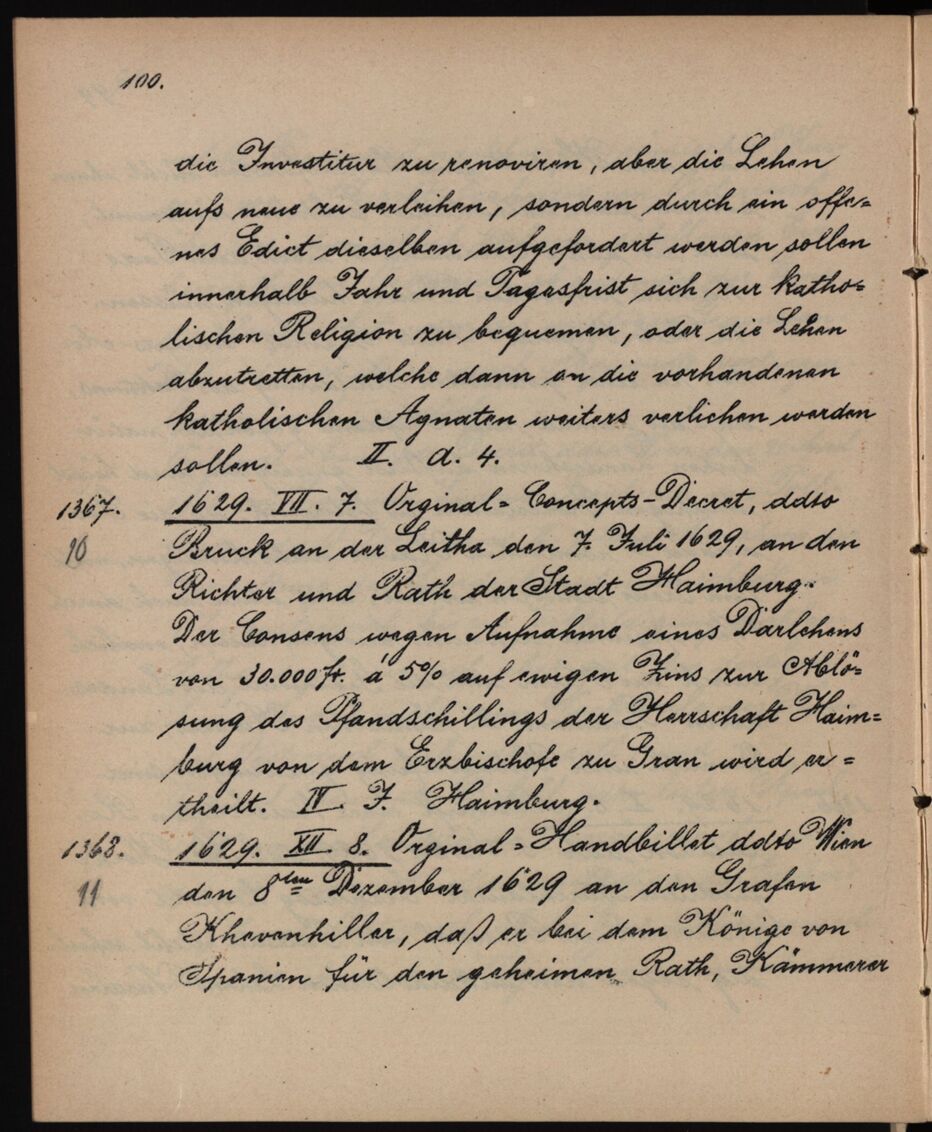 100.
die Investitur zu renoviren, aber die Lehen
aufs neue zu verleihen, sondern durch ein offe=
nes Edict dieselben aufgefordert werden sollen
innerhalb Jahr und Tagesfrist sich zur katho=
lischen Religion zu bequemen, oder die Lehen
abzutretten, welche dann an die vorhandenen
katholischen Agnaten weiters verlichen werden
sollen. II. d. 4.
1367. 1629. VII. 7. Orginal=Concepts-Decret, ddto
10 Bruck an der Leitha den 7. Juli 1629, an den
Richter und Rath der Stadt Haimburg.
Der Consens wegen Aufnahme eines Darlehens
von 30.000 fr. á 5% auf ewigen Zins zur Ablö=
sung des Pfandschillings der Herrschaft Haim=
burg von dem Erzbischofe zu Gran wird er=
theilt. IV. F. Haimburg.
1368. 1629. XII. 8. Orginal=Handbillet ddto Wien
11 den 8ten Dezember 1629 an den Grafen
Khevenhiller, daß er bei dem Könige von
Spanien für den geheimen Rath, Kämmerer